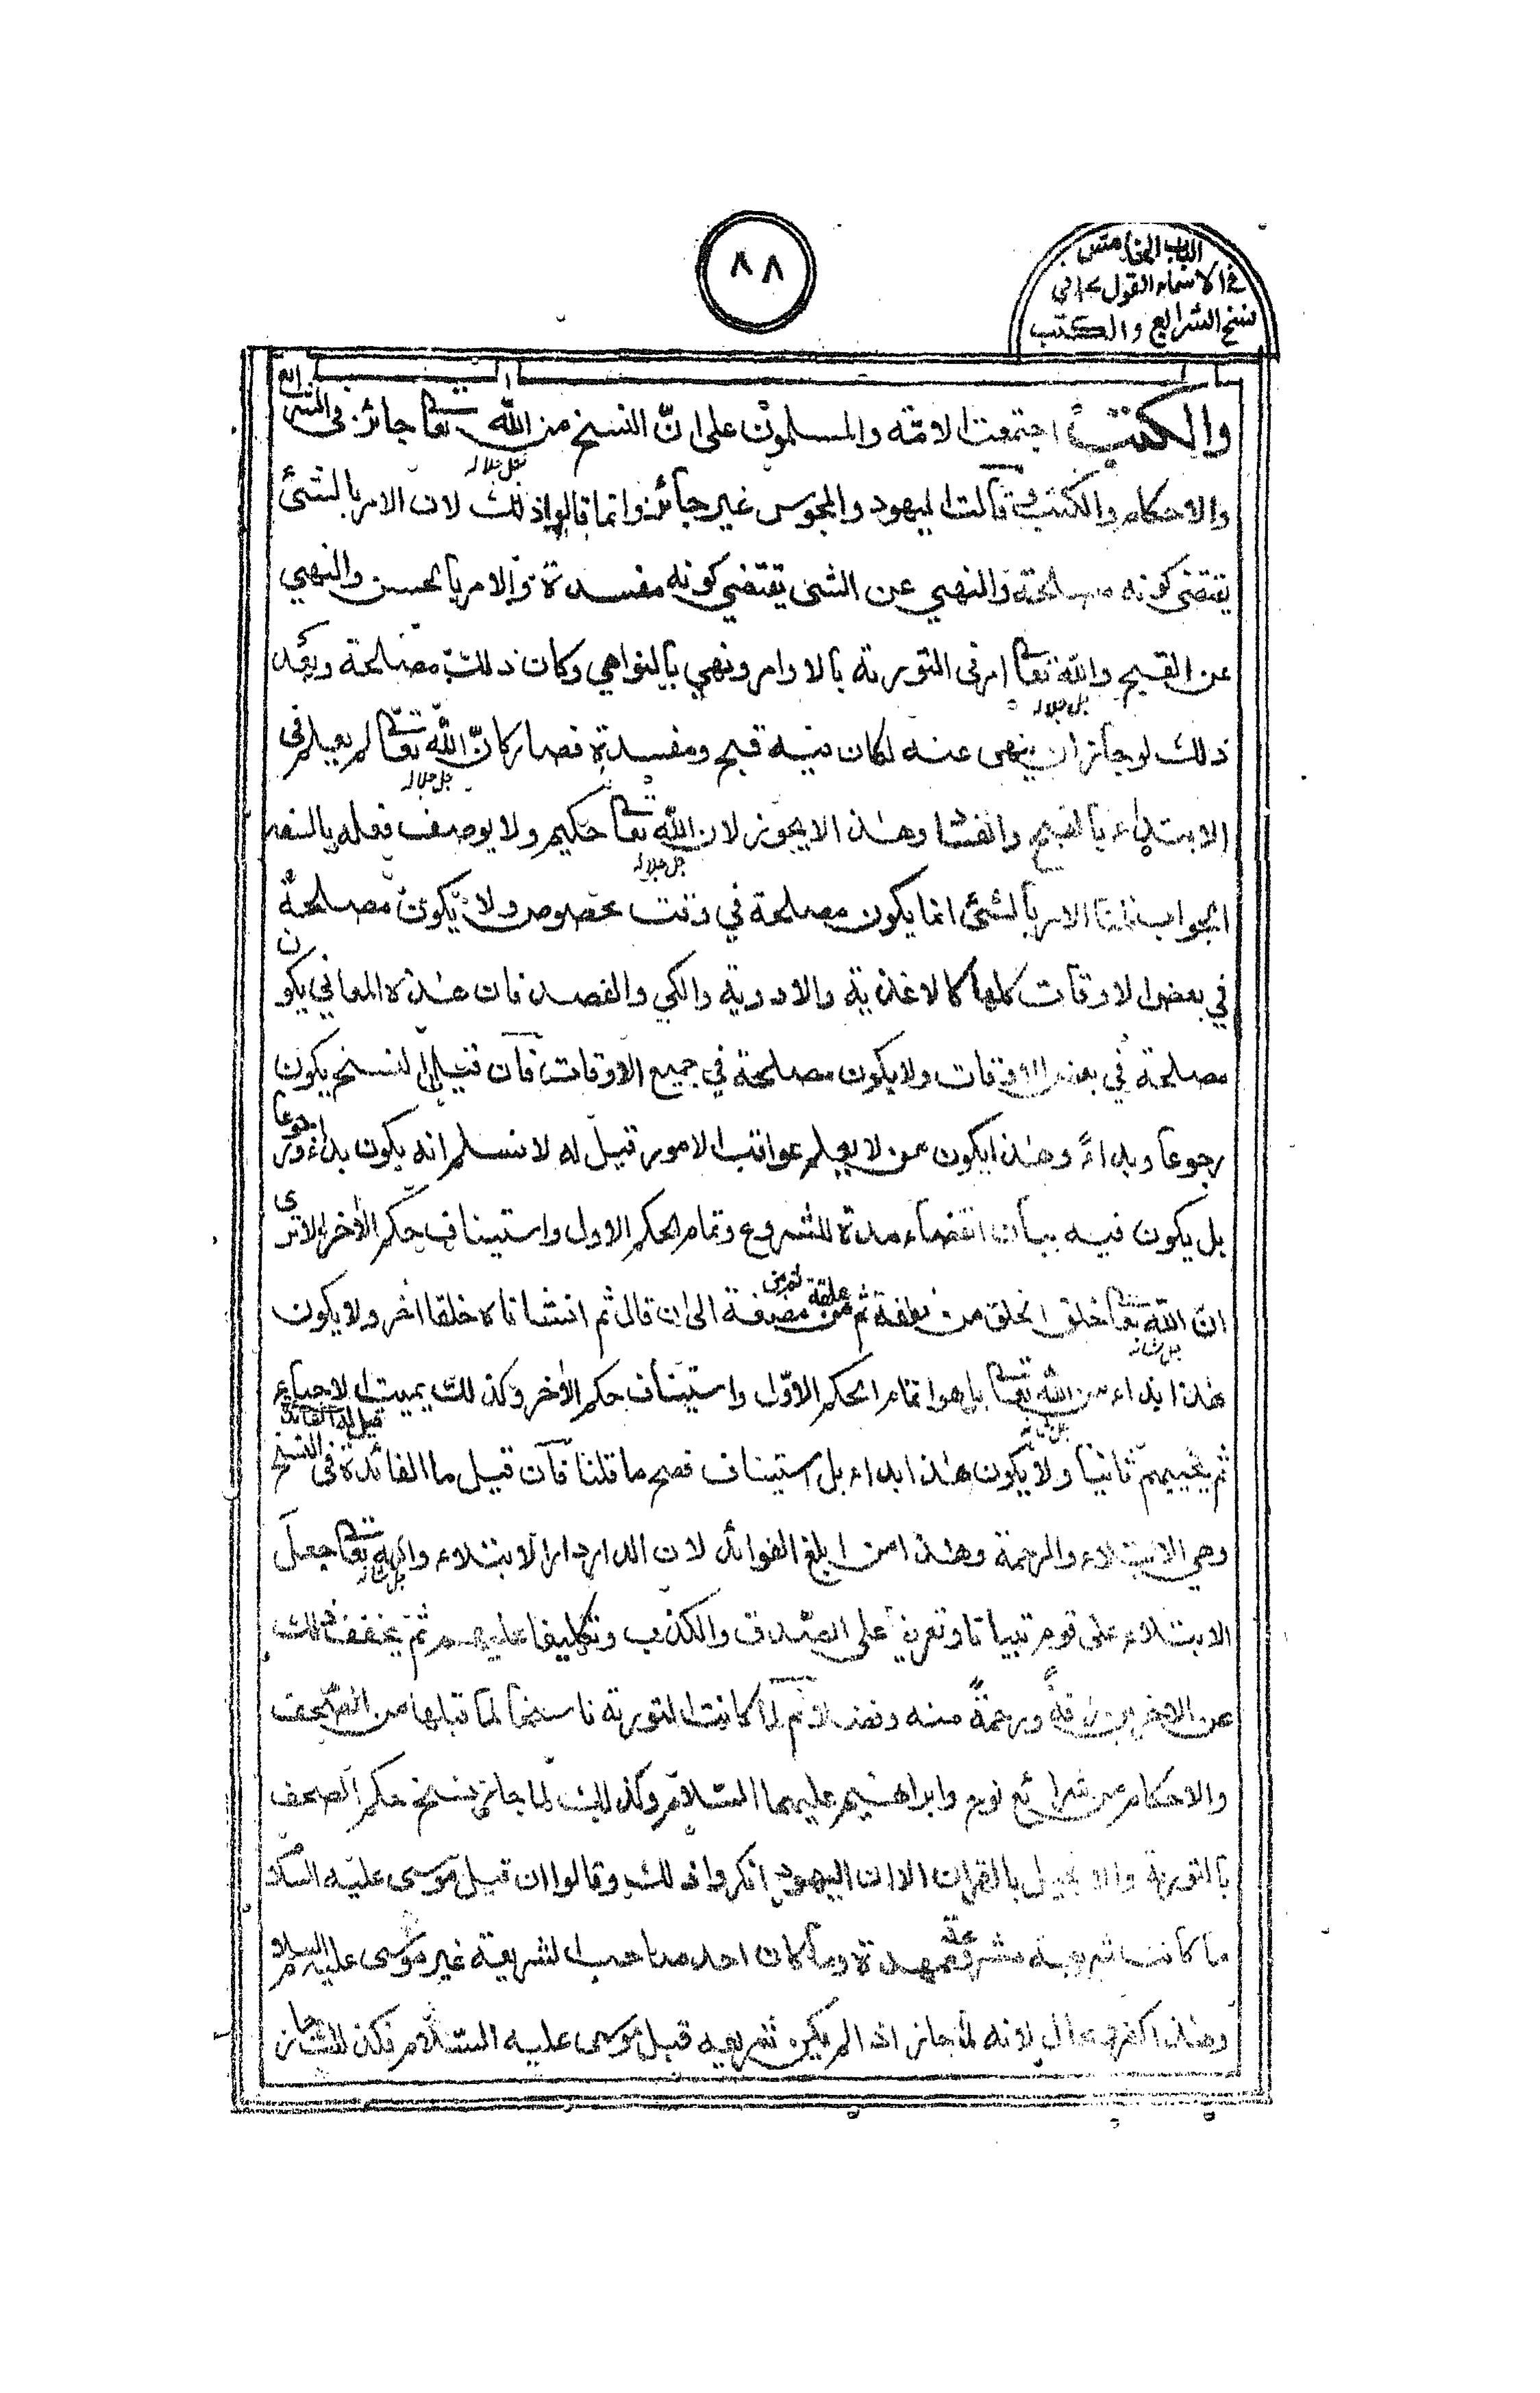 ٨٨
الباب الخامس
في الاسماء القول في
نسخ الشرائع والكتب
والكتب اجتمعت الامّة والمسلمون على انّ النسخ من الله تعا جل جلاله جائز فى الشرائع
والاحكام والكتب وقالت اليهود والمجوس غير جائز وانما قالوا ذلك لان الامر بالشئ
يقتضى كونه مصلحة والنهي عن الشئ يقتضي كونه مفسدة والامر بالحسن والنهي
عن القبيح والله تعا جل جلاله امر فى التورية بالاوامر ونهي بالنواهي وكان ذلك مصلحة وبعد
ذلك لو جاز ان ينهى عنه لكان فيه قبح ومفسدة فصار كانّ الله تعا جل جلاله لم يعلم فى
الابتداء بالقبيح وهذا لا يجوز لان الله تعا جل جلاله حكيم ولا يوصف فعله
الجواب قلنا الامر بالشئ انما يكون مصلحة في وقت مخصوص ولا يكون مصلحة
في بعض الاوقات كلها كالاغذية والادوية والكي والفصد فان هذه المعاني يكون
مصلحة في بعض الاوقات ولا يكون مصلحة في جميع الاوقات فان قيل النسخ يكون
رجوعا وبداءً وهذا يكون ممن لا يعلم عواقب الامور قيل له لا نسلم انه يكون بداء ورجوعا
بل يكون فيه بيان انقضاء مدة للشروع وتمام الحكم الاول واستيناف حكم الأخر الا ترى
ان الله تعا جل شانه خلق الخلق من نطفة ثم من علقة ثم من مضغة الى ان قال ثم انشاناه خلقا اخر ولا يكون
هذا بداء من الله تعا جل شانه بل هو اتمام الحكم الاوّل واستيناف حكم الأخر وكذلك يميت الاحياء
ثم يحييهم ثانيا ولا يكون هذا بداء بل استيناف فصح ما قلنا فان قيل ما الفائدة فى النسخ قيل له الفائدة
وهي الابتلاء والرحمة وهذا من ابلغ الفوائد لان الدار دار الابتلاء والله تعا جل شانه جعل
الابتلاء على قوم تبيانا وتعريفا على الصّدق والكذب وتكليفا عليهم ثم يخفف ذلك
عن الاخرين رافةً ورحمةً منه وفضلا ثم لما كانت التورية ناسخا لما قبلها من الصّحف
والاحكام من شرائع نوح وابراهيم عليهما السّلام وكذلك لما جاز نسخ حكم الصحف
بالتورية والانجيل بالقران الا ان اليهود انكروا ذلك وقالوا ان قبل موسى عليه السلا
ما كانت شريعة ممهدة وما كان احد صاحب الشريعة غير موسى عليه السلام
وهذا لانه لما جاز اذا لم يكن شريعه قبل موسى عليه السّلام